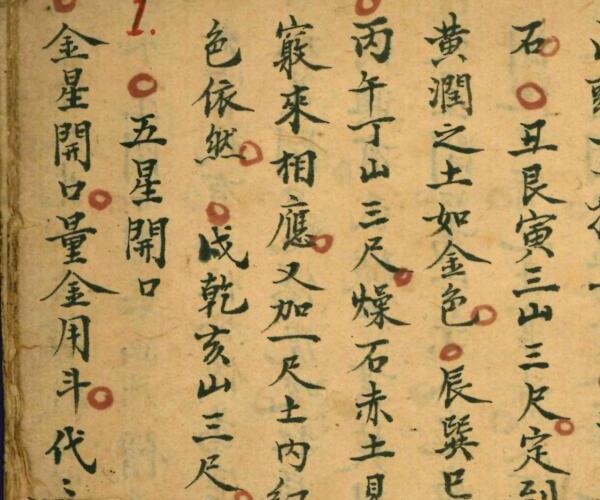 石○丑艮寅三山三尺定到
黄潤之土如金色○辰巽巳
丙午丁山三尺燥石赤土見
竅來相應又加一尺土内紅
色依然○戌乾亥山三尺
1.
○五星開口
金星開口量金用斗代